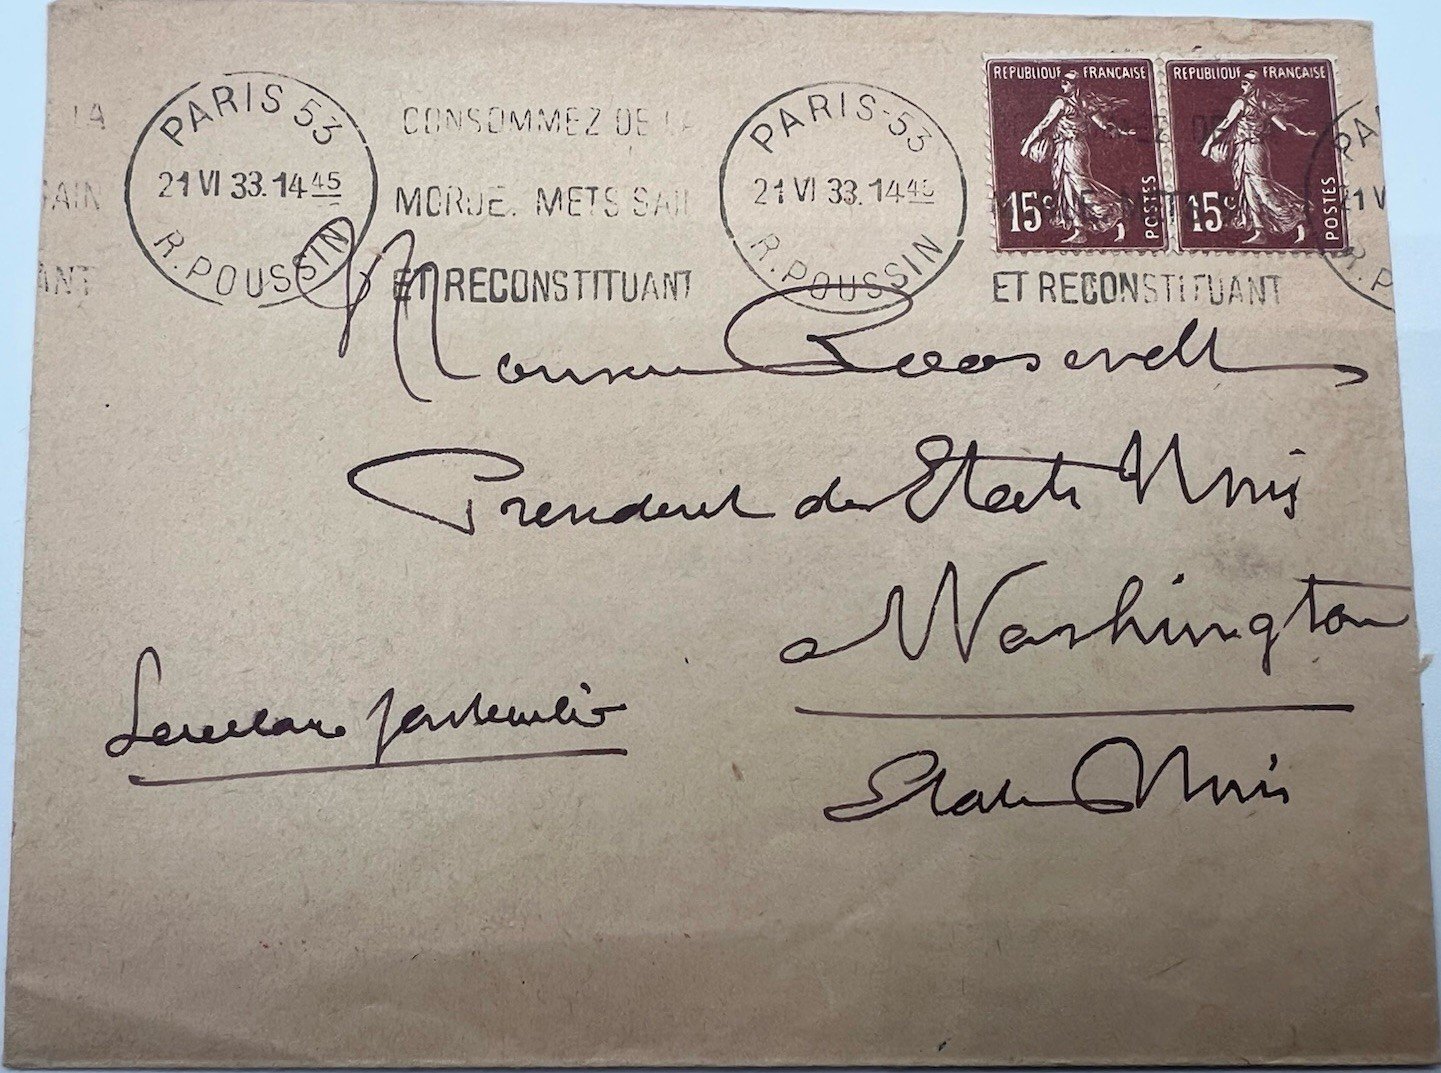 LA
PARIS 53
CONSOMMEZ DE LA
PARIS-53
REPUBLIQUE FRANÇAISE
REPUBLIQUE FRANÇAISE
PA
SAIN
21 VI 33. 14 45
MORUE. METS SAIN
21 VI 33. 14 45
15c POSTES
15c POSTES
21 V
ANT
R. POUSSIN
ET RECONSTITUANT
R. POUSSIN
ET RECONSTITUANT
R. P
Monsieur Roosevelt
President des Etats Unis
a Washington
Etats Unis